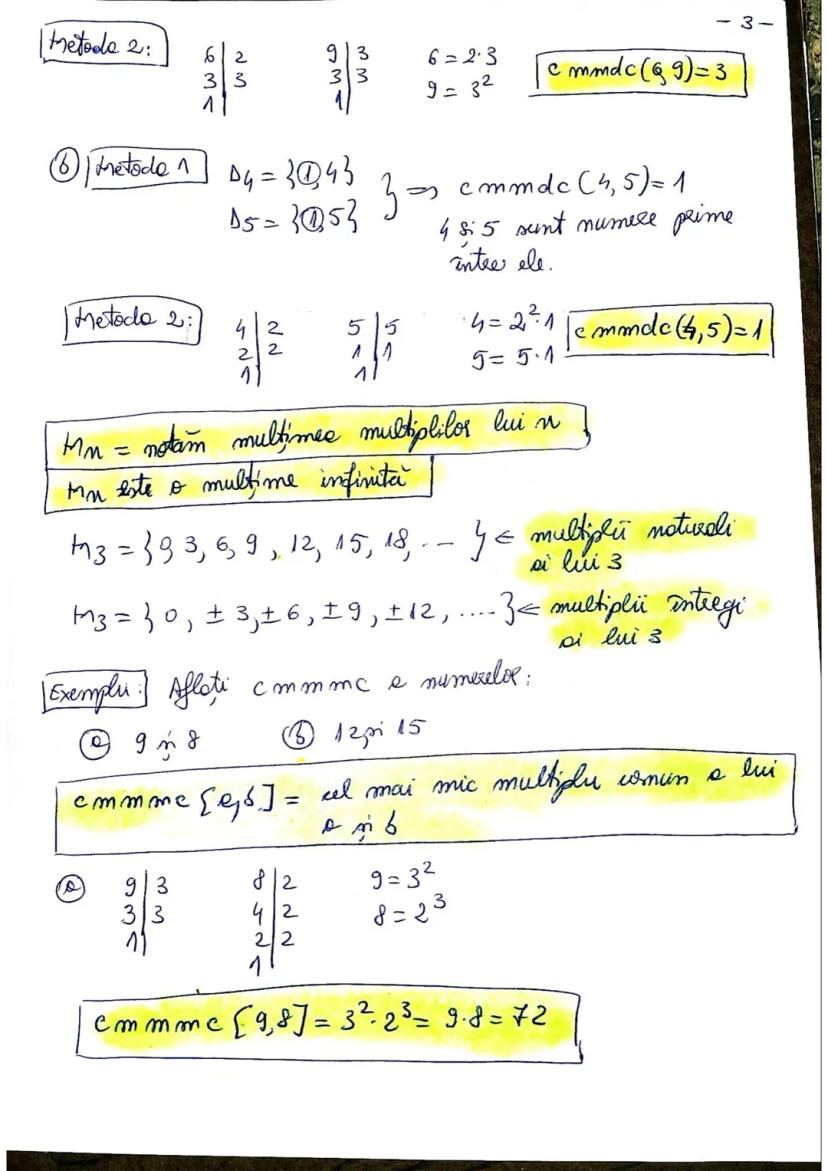 - 3 -
Metoda 2: 6 | 2 9 | 3 6 = 2·3 cmmdc(6, 9) = 3
3 | 3 3 | 3 9 = 3²
1 | 1 |
b Metoda 1 D4 = {1,4} } ⇒ cmmdc(4, 5) = 1
D5 = {1,5} 4 și 5 sunt numere prime
între ele.
Metoda 2: 4 | 2 5 | 5 4 = 2²·1 cmmdc(4,5) = 1
2 | 2 1 | 1 5 = 5·1
1 | 1 |
Mn = notăm mulțimea multiplilor lui n
Mn este o mulțime infinită
M3 = {0, 3, 6, 9, 12, 15, 18, ...} ← multiplii naturali
ai lui 3
M3 = {0, ±3, ±6, ±9, ±12, ....} ← multiplii întregi
ai lui 3
Exemplu: Aflați cmmmc a numerelor:
a 9 și 8 b 12 și 15
cmmmc [a,b] = cel mai mic multiplu comun a lui
a și b
a 9 | 3 8 | 2 9 = 3²
3 | 3 4 | 2 8 = 2³
1 | 2 | 2
1 |
cmmmc [9,8] = 3²·2³ = 9·8 = 72